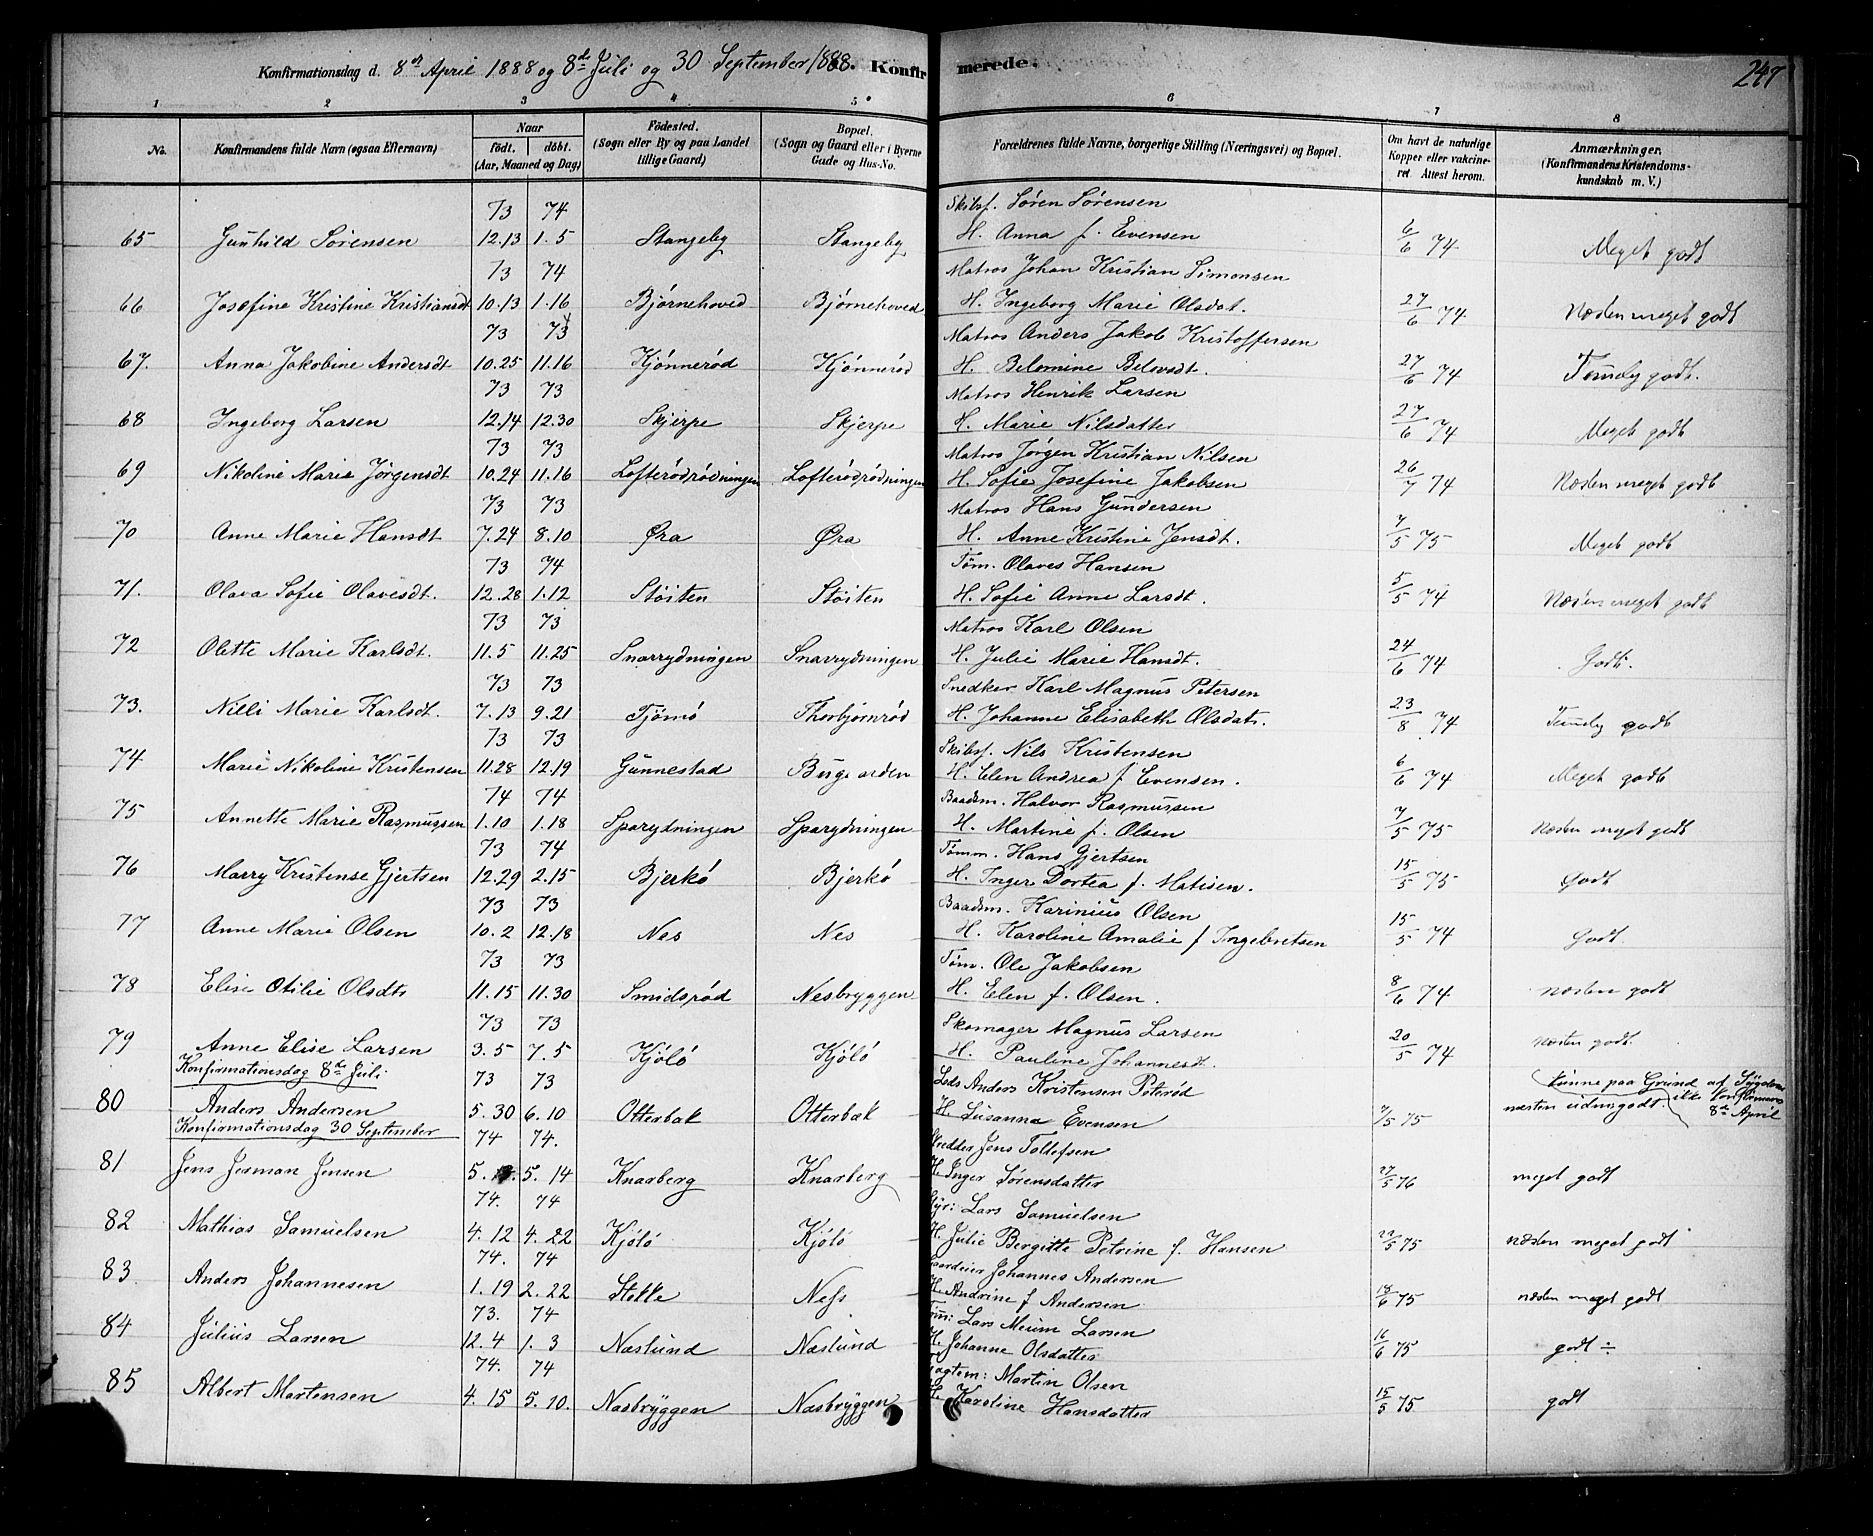 Konfirmationsdag d. 8de April 1888 og 8de Juli og 30 September 1888. Konfirmerede. 247
1 2 3 4 5 6 7 8
No. Konfirmandens fulde Navn (ogsaa Efternavn) Naar født. døbt. (Aar, Maaned og Dag) Fødested. (Sogn eller By og paa Landet tillige Gaard) Bopæl. (Sogn og Gaard eller i Byerne Gade og Hus-No. Forældrenes fulde Navne, borgerlige Stilling (Næringsvei) og Bopæl. Om havt de naturlige Kopper eller vakcineret. Attest herom. Anmærkninger. (Konfirmandens Kristendomskundskab m. V.)
73 74 Skibsf. Søren Sørensen
65 Gunhild Sørensen 12.13 1.5 Stangeby Stangeby H. Anna f. Evensen 6/6 74 Meget godt
73 74 Matros Johan Kristian Simonsen
66 Josefine Kristine Kristiansdt 10.13 1.16 Bjørnehoved Bjørnehoved H. Ingeborg Marie Olsdat. 27/6 74 Næsten meget godt
73 73 Matros Anders Jakob Kristoffersen
67. Anna Jakobine Andersdt 10.25 11.16 Kjønnerød Kjønnerød H. Belomine Belovsdt. 27/6 74 Temely godt.
73 73 Matros Henrik Larsen
68 Ingeborg Larsen 12.14 12.30 Skjerpe Skjerpe H. Marie Nilsdatter 27/6 74 Meget godt
73 73 Matros Jørgen Kristian Nilsen
69 Nikoline Marie Jørgensdt 10.24 11.16 Lofterødrødningen Lofterødrødningen H. Sofie Josefine Jakobsen 26/7 74 Næsten meget godt
73 73 Matros Hans Gundersen
70 Anne Marie Hansdt 7.24 8.10 Øra Øra H. Anne Kristine Jensdt. 7/5 75 Meget godt
73 74 Tøm. Olaves Hansen
71. Olava Sofie Olavesdt. 12.28 1.12 Støiten Støiten H. Sofie Anne Larsdt. 5/5 74 Næsten meget godt
73 73 Matros Karl Olsen
72 Olette Marie Karlsdt. 11.5 11.25 Snarrydningen Snarrydningen H. Julie Marie Hansdt. 24/6 74 Godt.
73 73 Snedker Karl Magnus Petersen
73. Nilli Marie Karlsdt. 7.13 9.21 Tjømø Thorbjørnrød H. Johanne Elisabeth Olsdatr. 23/8 74 Temely godt
73 73 Skibsf. Nils Kristensen
74 Marie Nikoline Kristensen 11.28 12.19 Gunnestad H. Elen Andrea f Evensen. 6/6 74 Meget godt
74 74 Baadsm. Halvor Rasmussen
75 Annette Marie Rasmussen 1.10 1.18 Sparydningen Sparydningen H. Martine f. Olsen 7/5 75 Næsten meget godt
73 74 Tømm. Hans Gjertsen
76 Marry Kristense Gjertsen 12.29 2.15 Bjerkø Bjerkø H. Inger Dortea f. Matisen. 15/5 75 Godt
73 73 Baadsm. Karinius Olsen
77 Anne Marie Olsen 10.2 12.18 Nes Nes H. Karoline Amalie f Ingebretsen 15/5 74 Godt.
73 73 Tøm. Ole Jakobsen
78 Elise Otilie Olsdtr 11.15 11.30 Smidsrød Nesbryggen H. Elen f. Olsen. 8/6 74 næsten godt
73 73 Skomager Magnus Larsen
79 Anne Elise Larsen 3.5 7.5 Kjøłø Kjøłø H. Pauline Johannesdt. 20/5 74 næsten godt.
Konfirmationsdag 8de Juli 73 73 Leds Anders Kristensen Peterød (kunne paa Grund af Sygdom ikke konfirmeres 8de April
80 Anders Andersen 5.30 6.10 Otterbæk Otterbæk H. Susanna Evensen 7/5 75 næsten udmgodt.
Konfirmationsdag 30 September 74 74. Jens Tollefsen
81 Jens Jerman Jensen 5. 5.14 Knarberg Knarberg H. Inger Sørensdatter 27/5 76 meget godt
74. 74 Styr: Lars Samuelsen
82 Mathias Samuelsen 4.12 4.22 Kjølø Kjølø H. Julie Bergitte Petrine f. Hansen 22/5 75 næsten meget godt
74. 74 Gaardeier Johannes Andersen
83. Anders Johannesen 1.19 2.22 Stokke Ness H. Andrine f Andersen 18/6 75 næsten meget godt
73. 74 Tøm: Lars Meum Larsen
84 Julius Larsen 12.4 1.3 Næslund Næslund H. Johanne Olsdatter 16/6 75 godt ÷
74. 74 Martin Olsen
85 Albert Martensen 4.15 5.10. Næsbryggen Næsbryggen H. Karoline Hansdatter 15/5 75 godt